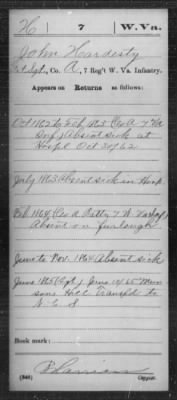 H 7 W. Va.
John Hardesty
1st Sgt., Co. A, 7 Reg't W. Va. Infantry.
Appears on
Returns as follows:
Oct 1862 to Feb 1863 Co A 7 Va
Inf Absent sick at
Hospl Oct 30/62
July 1863 Absent sick in Hosp.
Feb 1864 (Co A Battn 7 W Va Inf)
Absent on furlough
June to Nov. 1864 Absent sick
June 1865 Sgt June 14 65
Transfd to
Book mark:
(546) Copyist.